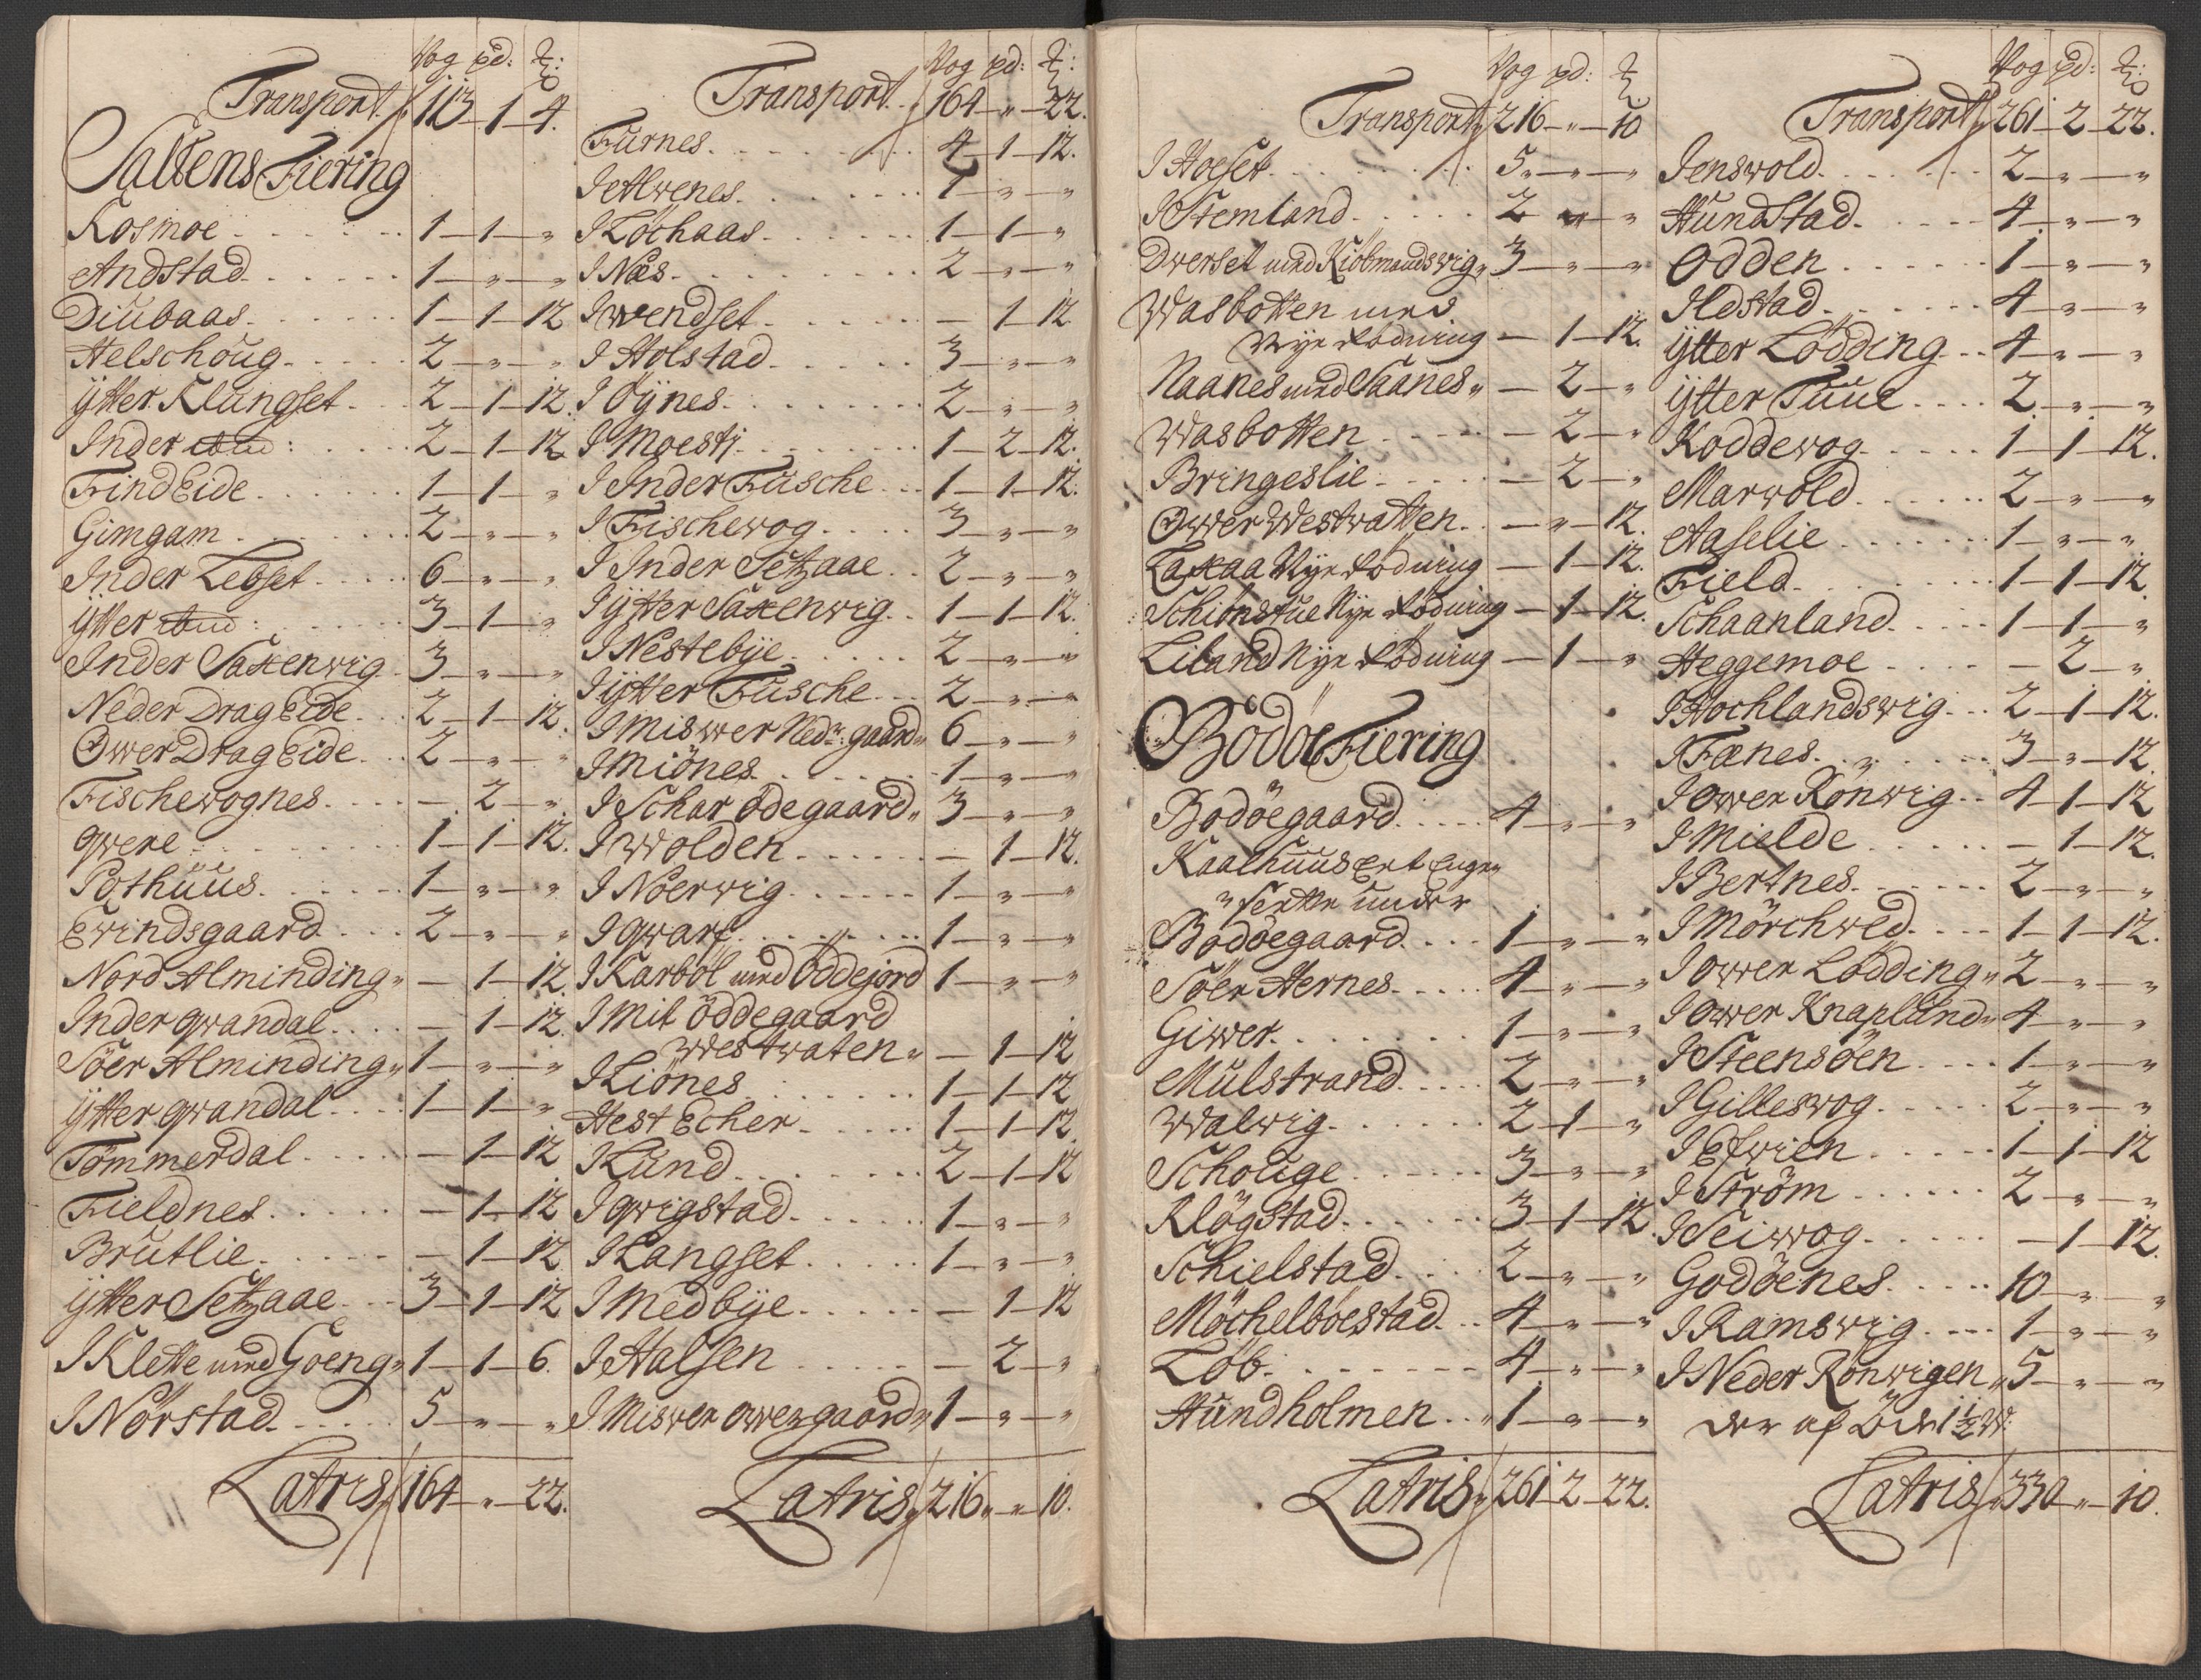 Vog pd: ℔:
Transport 113–1–4.
Saltens Fiering
Kosmoe 1–1–"
Andstad 1–"–"
Diubaas 1–1–12
Helschoug 2–"–"
ÿtter Klungset 2–1–12.
Inder ibid: 2–1–12
FindEide 1–1–"
Gimgam 2–"–"
Inder Lebset 6–"–"
ÿtter ibid: 3–1–"
Inder Saxenwig 3–"–"
Neder DragEide 2–1–12.
Ower DragEide 2–"–"
Fischewognes –2–"
qwere 1–1–12.
Pothuus 1–"–"
Ewindsgaard 2–"–"
Nord Alminding" –1–12.
Inder qwandal –1–12.
Söer Alminding" 1–"–"
ÿtter qwandal 1–1–"
Tömmerdal –1–12
Fieldnes –1–12
Brutlie –1–12
ÿtter Setzaae 3–1–12
I Klette med Goeng" 1–1–6.
I Nörstad 5–"–"
Latris 164–"–22.
Vog pd: ℔:
Transport 164–"–22.
Furnes 4–1–12.
I Alwenes 1–"–"
I Löchaas 1–1–"
I Næs 2–"–"
I wendset –1–12
I Holstad 3–"–"
I Öÿnes 2–"–"
I Moestj 1–2–12.
I Inder Fusche 1–1–12.
I Fischewog 3–"–"
I Inder Setzaae 2–"–"
I ÿtter Saxenwig 1–1–12.
I Nestebÿe 2–"–"
I ÿtter Fusche 2–"–"
I Miswer Nedr: gaard" 6–"–"
I Miönes 1–"–"
I Schar ödegaard" 3–"–"
I Wolden –1–12.
I Noerwig 1–"–"
I qwarf 1–"–"
I Karböl med Oddejord 1–"–"
I Mit öddegaard
westwaten" –1–12
I Liönes 1–1–12
Hest Echer 1–1–12.
I Lund 2–1–12
I qwigstad 1–"–"
I Langset 1–"–"
I Medbÿe –1–12
I Halsen –2–"
I Miswer owergaard" 1–"–"
Latris 216–"–10.
Vog pd: ℔
Transport 216–"–10
I Hoeset 5–"–"
I Stemland 2–"–"
Dwerset med Kiöbmandswig" 3–"–"
Wasbotten med
Nÿe Rödning –1–12.
Naanes med Saanes" –2–"
Wasbotten –2–"
Bringeslie –2–"
Ower Westwatten –"–12.
Laxaa Nÿe Rödning –1–12.
Schionstue Nÿe Rödning –1–12.
Liland Nÿe Rödning –1–"
Bodöe Fiering
Bodöegaard 4–"–"
Kaalhuus Ert Enge"
" under
Bodöegaard 1–"–"
Söer Hernes 4–"–"
Giwer 1–"–"
Mulstrand 2–"–"
Walwig 2–1–"
Schouge 3–"–"
Klögstad 3–1–12
Schielstad 2–"–"
Möchelböestad 4–"–"
Löb 4–"–"
Hundholmen 1–"–"
Latris 261–2–22.
Vog pd: ℔:
Transport 261–2–22.
Jenswold 2–"–"
Hundstad 4–"–"
Odden 1–"–"
Ildstad 4–"–"
ÿtter Lödding 4–"–"
ÿtter Tuue 2–"–"
Koddewog 1–1–12.
Marwold 2–"–"
Aaselie 1–"–"
Field 1–1–12.
Schaanland 1–1–"
Heggemoe –2–"
I Hochlandswig 2–1–12.
I Fænes 3–"–12.
I ower Rönwig 4–1–12
I Mielde –1–12.
I Bertnes 2–"–"
I Mörchwed 1–1–12.
I ower Lödding" 2–"–"
I ower Knaplund" 4–"–"
I Steensöen 1–"–"
I Gilleswog 2–"–"
I Efwien 1–1–12
I Ström 2–"–"
I Seiwog –1–12.
Godöenes 10–"–"
I Ramswig 1–"–"
I Neder Rönwigen" 5–"–"
der af Öde 1½ W:
Latris 330–"–10.